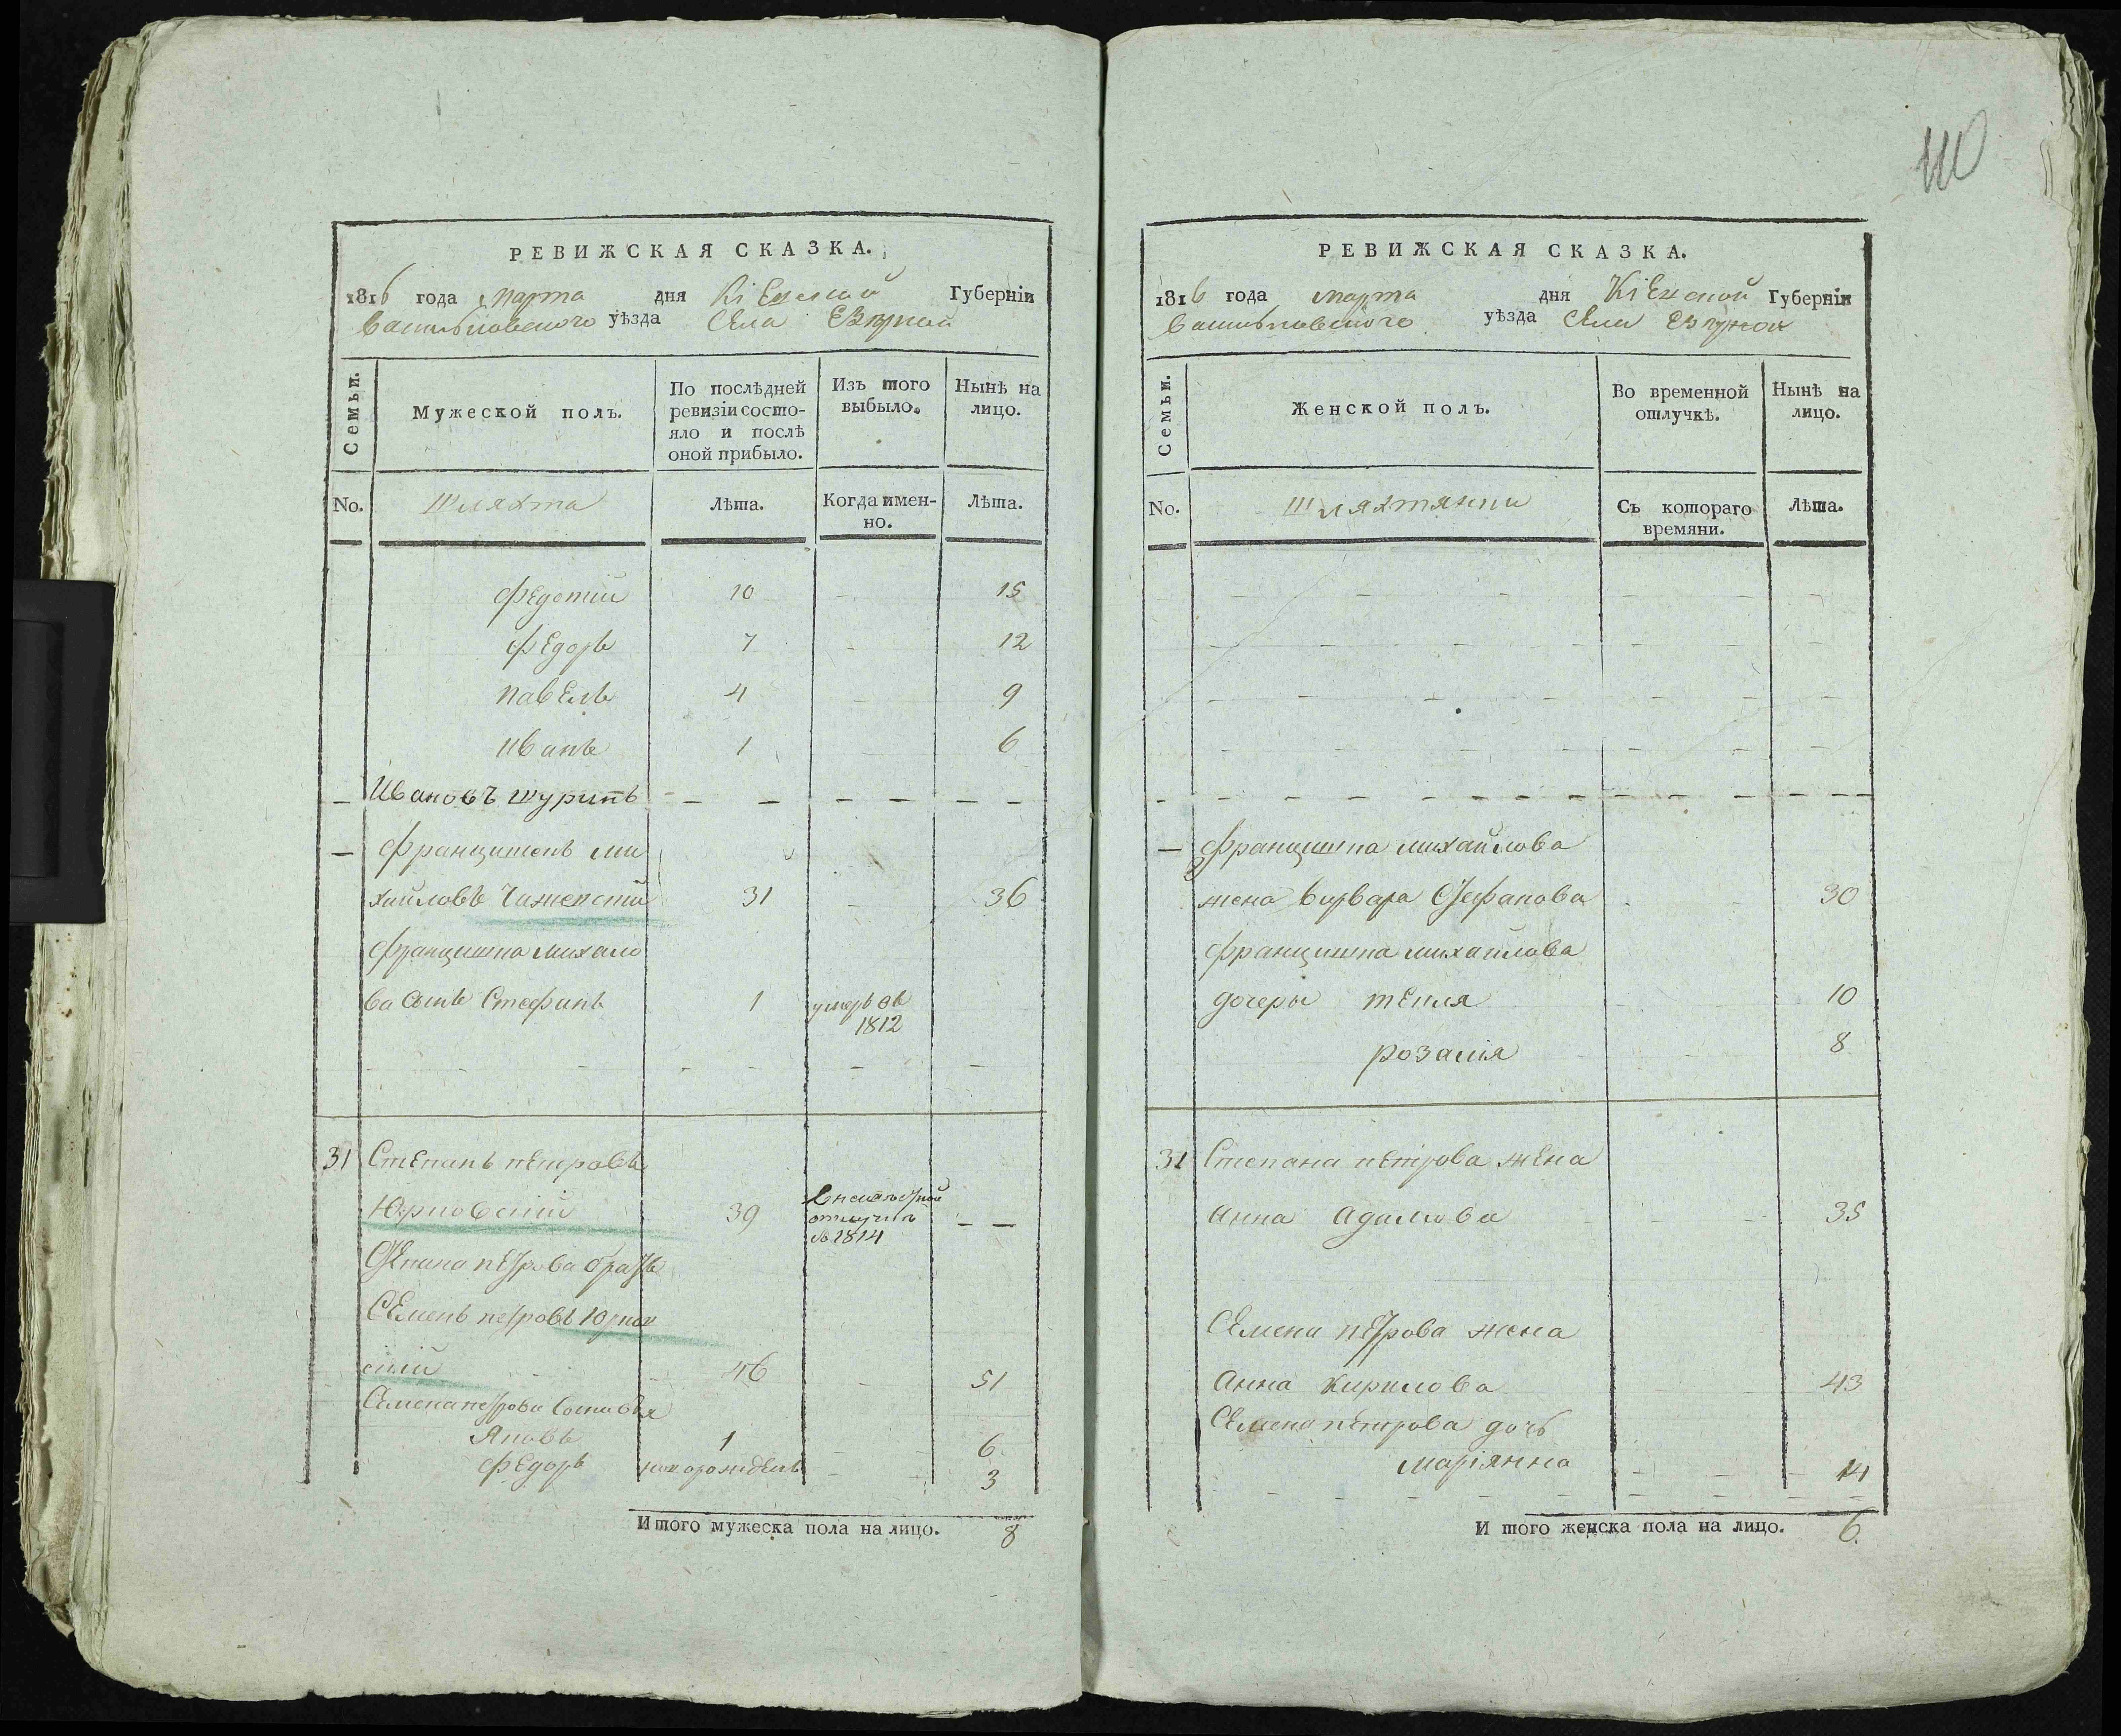 РЕВИЖСКАЯ СКАЗКА.
1816 года марта дня Кіевской Губерніи
Васильковского уѣзда села Езерной
Семьи.
Мужеской полъ.
По послѣдней
ревизіи состо-
яло и послѣ
оной прибыло.
Изъ того
выбыло.
Нынѣ на
лицо.
No. Шляхта Лѣта. Когда имен-
но.
Лѣта.
Федотій 10 15
Федоръ 7 12
Павелъ 4 9
Иванъ 1 6
Ивановъ шуринъ
Францишекъ Ми
хайловъ 31 36
Францишка Михало
ва сынъ Стефанъ 1 умеръ въ
1812
31 Степанъ Петровъ
Юрковскій 39 отлучкѣ
1814
Степана Петрова братъ
Семенъ Петровъ Юрков
скій 46 51
Семена Петрова сыновья
Яковъ 1 6
Федоръ новорожденъ 3
Итого мужеска пола на лицо. 8
110
РЕВИЖСКАЯ СКАЗКА.
1816 года марта дня Кіевской Губерніи
Васильковского уѣзда села Езерной
Семьи.
Женской полъ.
Во временной
отлучкѣ.
Нынѣ на
лицо.
No. Шляхтянки Съ котораго
времяни.
Лѣта.
Францишка Михайлова
жена Варвара Стефанова 30
Францишка Михайлова
дочеры Текля 10
Розалія 8
31 Степана Петрова жена
Анна Адамова 35
Семена Петрова жена
Анна Кирилова 43
Семена Петрова дочь
Маріянна 14
И того женска пола на лицо. 6